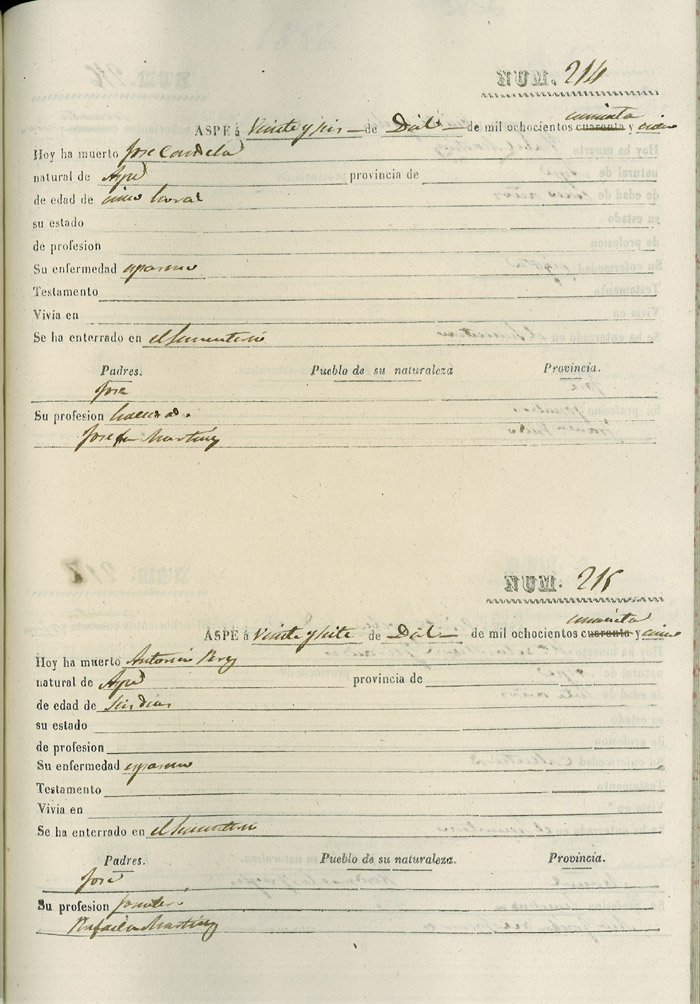 NUM. 214
ASPE á Veinte y seis de Dicbe de mil ochocientos cuarenta y cinco
cincuenta
Hoy ha muerto Jose Candela
natural de Aspe provincia de
de edad de cinco horas
su estado
de profesion
Su enfermedad espasmo
Testamento
Vivia en
Se ha enterrado en el Sementerio
Padres. Pueblo de su naturaleza Provincia.
Jose
Su profesion
Josefa Martinez
NUM. 215
ASPE á Veinte y siete de Dicbe de mil ochocientos cuarenta y cinco
cincuenta
Hoy ha muerto Antonio Perez
natural de Aspe provincia de
de edad de seis dias
su estado
de profesion
Su enfermedad espasmo
Testamento
Vivia en
Se ha enterrado en el Sementerio
Padres. Pueblo de su naturaleza. Provincia.
José
Su profesion
Rafaela Martinez